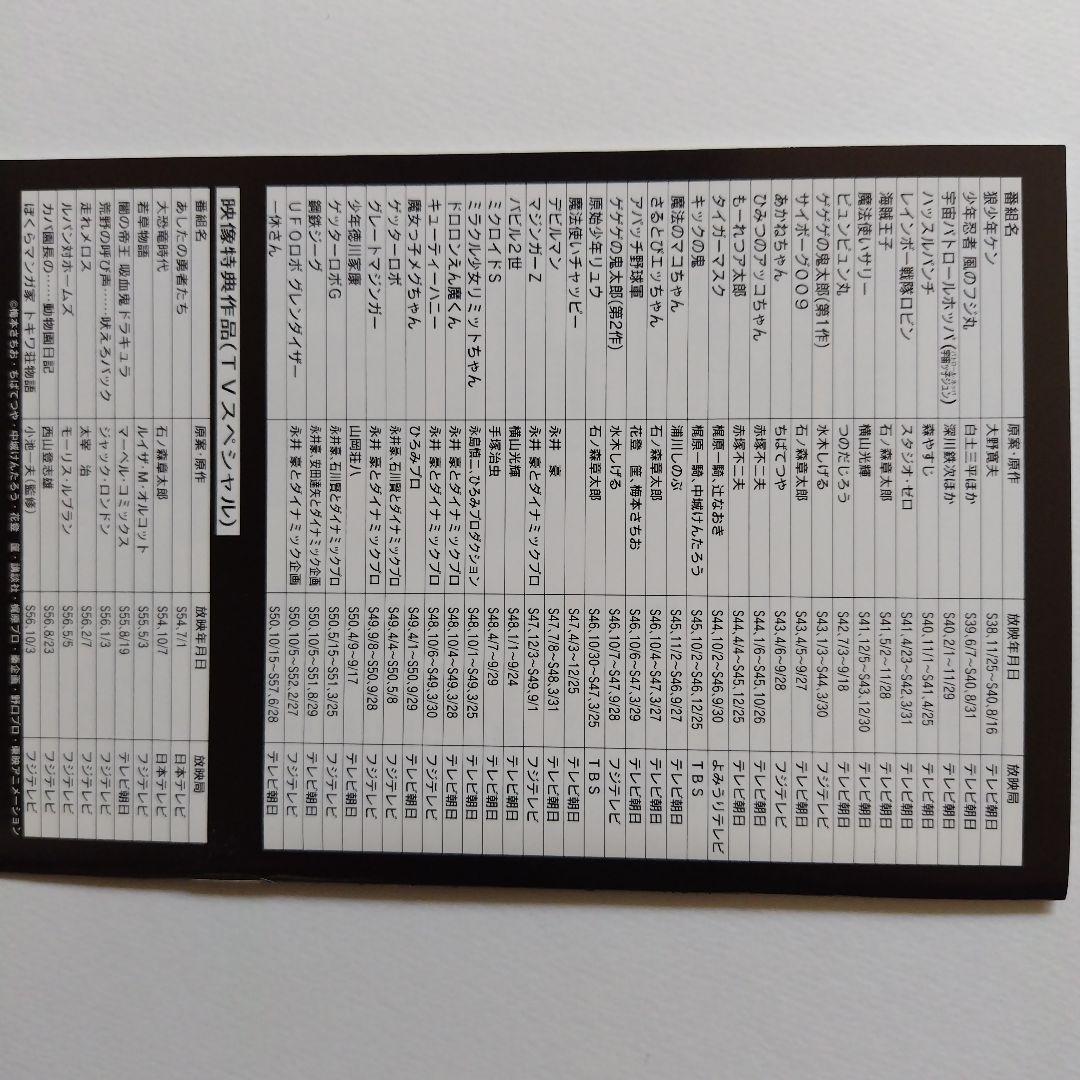 番組名 原案・原作 放映年月日 放映局
狼少年ケン 大野寛夫 S38.11/25~S40.8/16 テレビ朝日
少年忍者 風のフジ丸 白土三平ほか S39.6/7~S40.8/31 テレビ朝日
宇宙パトロールホッパ(パトロール・ホッパ宇宙ッ子ジュン) 深川鉄次ほか S40.2/1~11/29 テレビ朝日
ハッスルパンチ 森やすじ S40.11/1~S41.4/25 テレビ朝日
レインボー戦隊ロビン スタジオ・ゼロ S41.4/23~S42.3/31 テレビ朝日
海賊王子 石ノ森章太郎 S41.5/2~11/28 テレビ朝日
魔法使いサリー 横山光輝 S41.12/5~S43.12/30 テレビ朝日
ピュンピュン丸 つのだじろう S42.7/3~9/18 テレビ朝日
ゲゲゲの鬼太郎(第1作) 水木しげる S43.1/3~S44.3/30 フジテレビ
サイボーグ009 石ノ森章太郎 S43.4/5~9/27 テレビ朝日
あかねちゃん ちばてつや S43.4/6~9/28 フジテレビ
ひみつのアッコちゃん 赤塚不二夫 S44.1/6~S45.10/26 テレビ朝日
もーれつア太郎 赤塚不二夫 S44.4/4~S45.12/25 テレビ朝日
タイガーマスク 梶原一騎、辻なおき S44.10/2~S46.9/30 よみうりテレビ
キックの鬼 梶原一騎、中城けんたろう S45.10/2~S46.3/26 TBS
魔法のマコちゃん 浦川しのぶ S45.11/2~S46.9/27 テレビ朝日
さるとびエッちゃん 石ノ森章太郎 S46.10/4~S47.3/27 テレビ朝日
アパッチ野球軍 花登 筐、梅本さちお S46.10/6~S47.3/29 テレビ朝日
ゲゲゲの鬼太郎(第2作) 水木しげる S46.10/7~S47.9/28 フジテレビ
原始少年リュウ 石ノ森章太郎 S46.10/30~S47.3/25 TBS
魔法使いチャッピー S47.4/3~12/25 テレビ朝日
デビルマン 永井 豪 S47.7/8~S48.3/31 テレビ朝日
マジンガーZ 永井 豪とダイナミックプロ S47.12/3~S49.9/1 フジテレビ
バビル2世 横山光輝 S48.1/1~9/24 テレビ朝日
ミクロイドS 手塚治虫 S48.4/7~9/29 テレビ朝日
ミラクル少女リミットちゃん 永島慎二、ひろみプロダクション S48.10/1~S49.3/25 テレビ朝日
ドロロンえん魔くん 永井 豪とダイナミックプロ S48.10/4~S49.3/28 フジテレビ
キューティーハニー 永井 豪とダイナミックプロ S48.10/6~S49.3/30 テレビ朝日
魔女っ子メグちゃん ひろみプロ S49.4/1~S50.9/29 テレビ朝日
ゲッターロボ 永井豪、石川賢とダイナミックプロ S49.4/4~S50.5/8 フジテレビ
グレートマジンガー 永井 豪とダイナミックプロ S49.9/8~S50.9/28 フジテレビ
少年徳川家康 山岡荘八 S50.4/9~9/17 テレビ朝日
ゲッターロボG 永井豪、石川賢とダイナミックプロ S50.5/15~S51.3/25 フジテレビ
鋼鉄ジーグ 永井豪、安田達矢とダイナミック企画 S50.10/5~S51.8/29 テレビ朝日
UFOロボ グレンダイザー 永井 豪とダイナミック企画 S50.10/5~S52.2/27 フジテレビ
一休さん S50.10/15~S57.6/28 テレビ朝日
映像特典作品(TVスペシャル)
番組名 原案・原作 放映年月日 放映局
あしたの勇者たち S54.7/1 日本テレビ
大恐竜時代 石ノ森章太郎 S54.10/7 日本テレビ
若草物語 ルイザ・M・オルコット S55.5/3 フジテレビ
闇の帝王 吸血鬼ドラキュラ マーベル・コミックス S55.8/19 テレビ朝日
荒野の呼び声……吠えろバック ジャック・ロンドン S56.1/3 フジテレビ
走れメロス 太宰 治 S56.2/7 フジテレビ
ルパン対ホームズ モーリス・ルブラン S56.5/5 フジテレビ
カバ園長の…… 動物園日記 西山登志雄 S56.8/23 フジテレビ
ぼくらマンガ家 トキワ荘物語 小池一夫(監修) S56.10/3 フジテレビ
©梅本さちお・ちばてつや・中城けんたろう・花登 筐・講談社・梶原プロ・秦企画・野口プロ・東映アニメーション